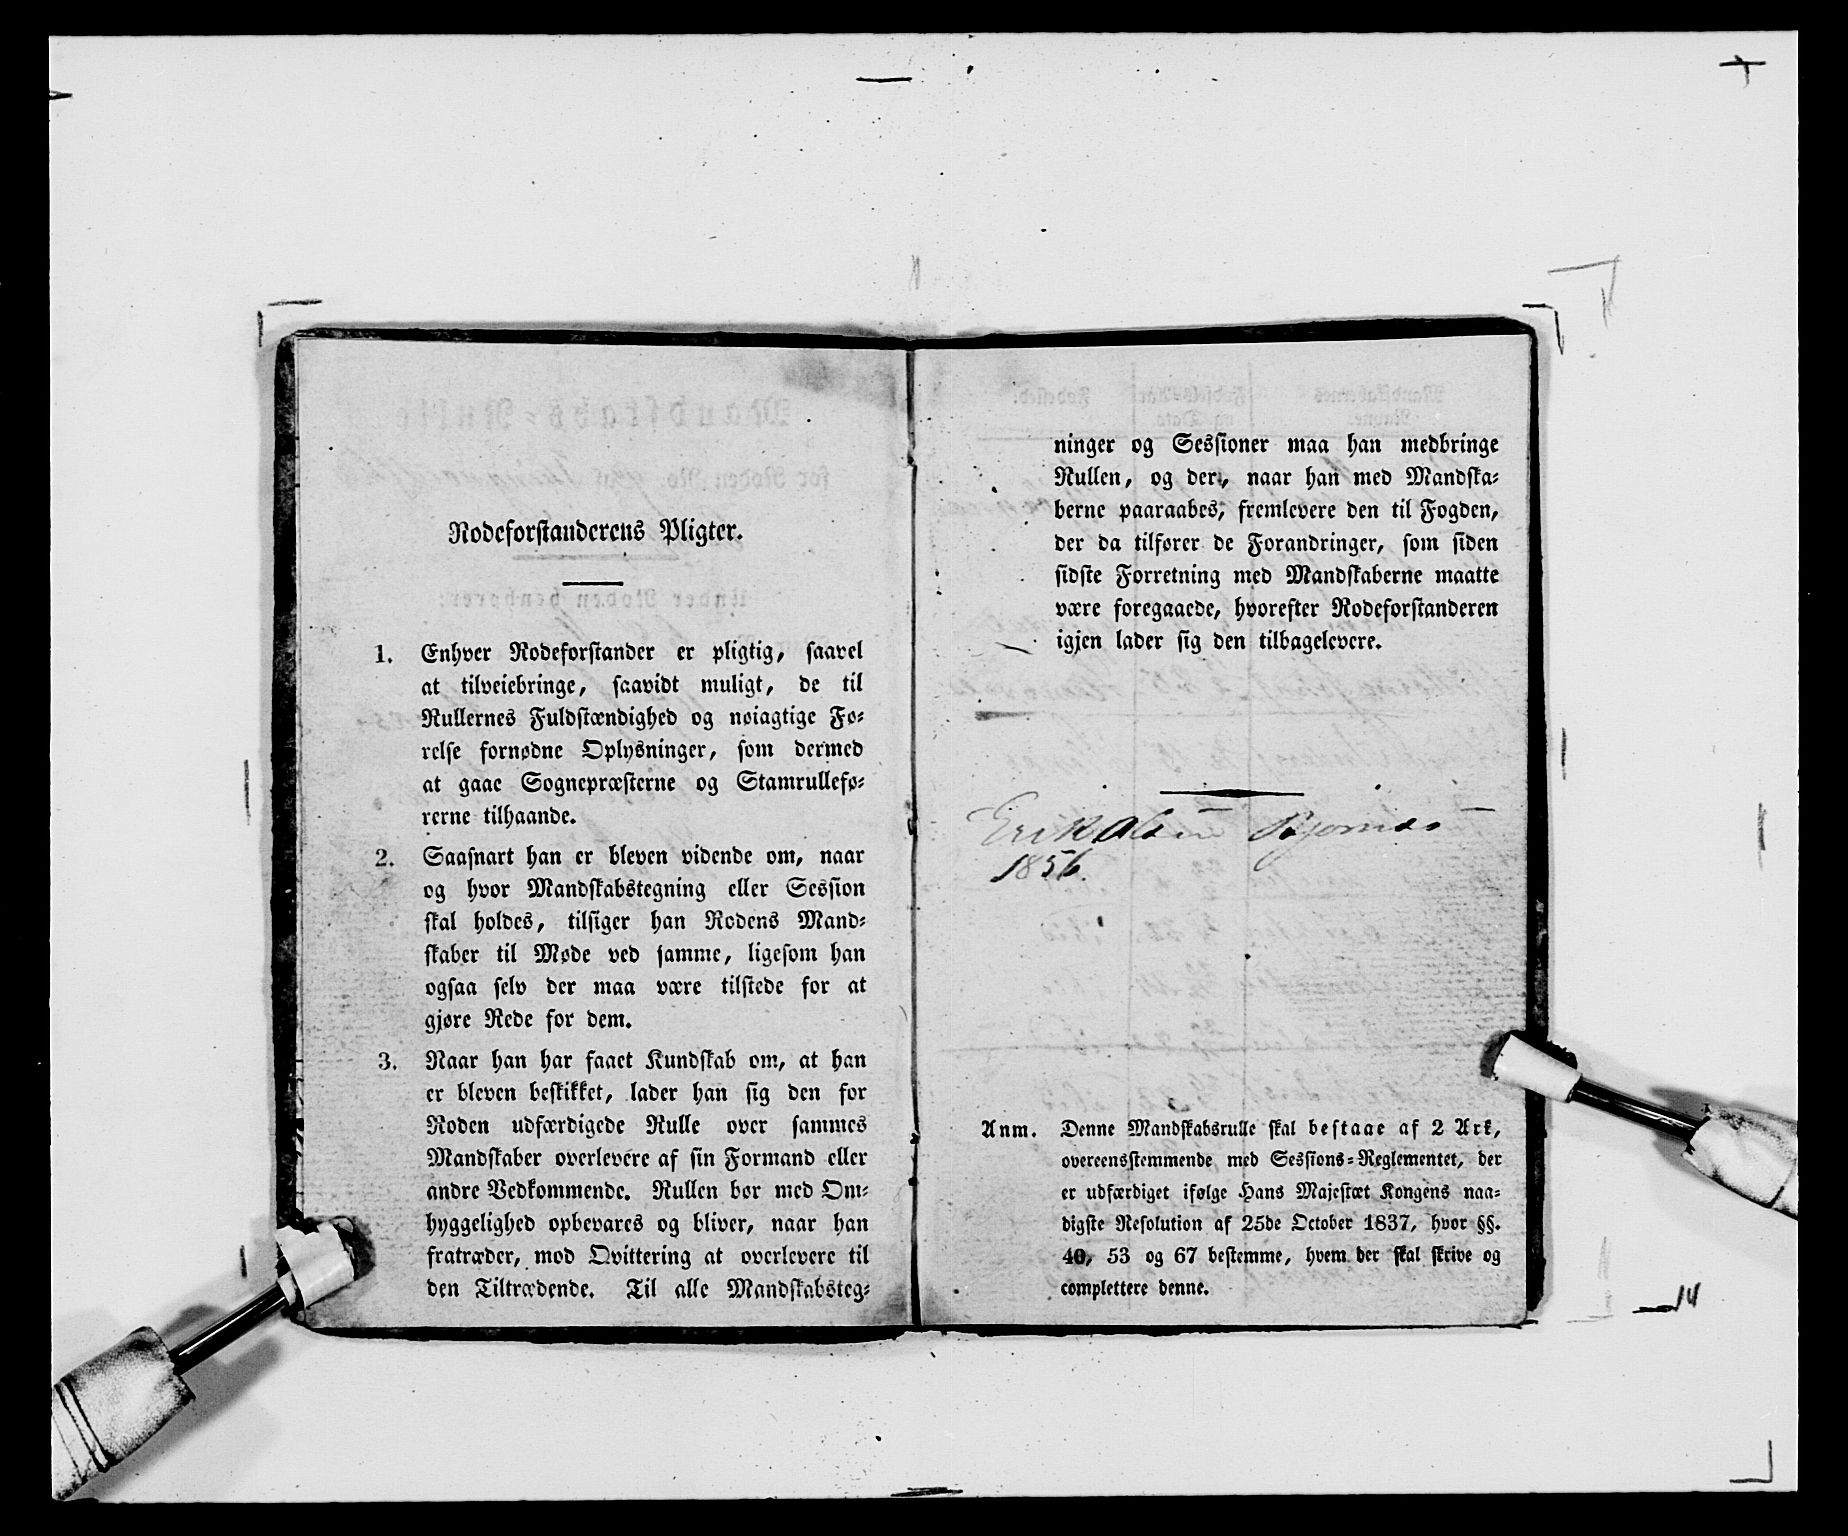 Rodeforstanderens Pligter.
1. Enhver Rodeforstander er pligtig, saavel
at tilveiebringe, saavidt muligt, de til
Rullernes Fuldstændighed og nøiagtige Fø-
relse fornødne Oplysninger, som dermed
at gaae Sognepræsterne og Stamrullefø-
rerne tilhaande.
2. Saasnart han er bleven vidende om, naar
og hvor Mandskabstegning eller Session
skal holdes, tilsiger han Rodens Mand-
skaber til Møde ved samme, ligesom han
ogsaa selv der maa være tilstede for at
gjøre Rede for dem.
3. Naar han har faaet Kundskab om, at han
er bleven beskikket, lader han sig den for
Roden udfærdigede Rulle over sammes
Mandskaber overlevere af sin Formand eller
andre Vedkommende. Rullen bør med Om-
hyggelighed opbevares og bliver, naar han
fratræder, mod Qvittering at overlevere til
den Tiltrædende. Til alle Mandskabsteg-
ninger og Sessioner maa han medbringe
Rullen, og der, naar han med Mandska-
berne paaraabes, fremlevere den til Fogden,
der da tilfører de Forandringer, som siden
sidste Forretning med Mandskaberne maatte
være foregaaede, hvorefter Rodeforstanderen
igjen lader sig den tilbagelevere.
Erik Olsen
1856.
Anm. Denne Mandskabsrulle skal bestaae af 2 Ark,
overeensstemmende med Sessions-Reglementet, der
er udfærdiget ifølge Hans Majestæt Kongens naa-
digste Resolution af 25de October 1837, hvor §§.
40, 53 og 67 bestemme, hvem der skal skrive og
complettere denne.
14